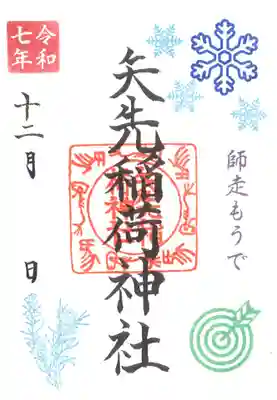 師走もうで
矢先稲荷神社
令和
七年
十二月 日